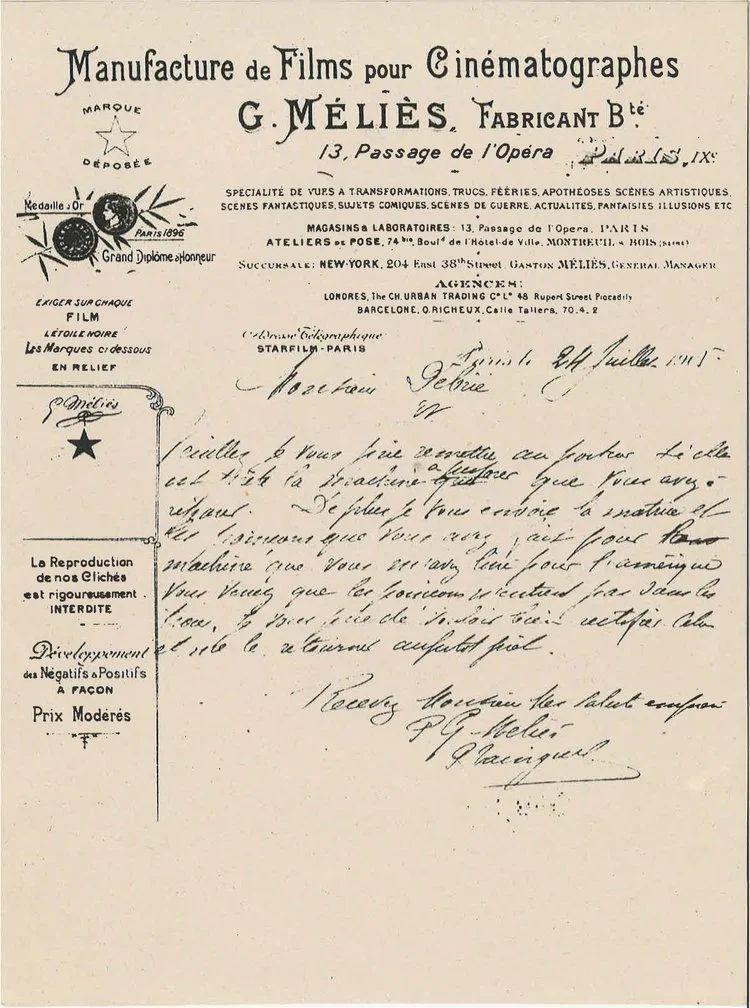 Manufacture de Films pour Cinématographes
G. MÉLIÈS, FABRICANT Bté
13, Passage de l'Opéra PARIS, IXe
MARQUE
DÉPOSÉE
Médaille d'Or
PARIS 1896
Grand Diplôme d'Honneur
SPÉCIALITÉ DE VUES A TRANSFORMATIONS, TRUCS, FÉERIES, APOTHÉOSES SCÈNES ARTISTIQUES,
SCÈNES FANTASTIQUES, SUJETS COMIQUES, SCÈNES DE GUERRE, ACTUALITES, FANTAISIES ILLUSIONS ETC
MAGASINS & LABORATOIRES: 13, Passage de l'Opera, PARIS
ATELIERS DE POSE, 74 bis, Boul.d de l'Hôtel-de Ville, MONTREUIL s BOIS (SEINE)
SUCCURSALE: NEW-YORK, 204 East 38th Street, GASTON MÉLIÈS, GENERAL MANAGER
AGENCES:
LONDRES, The CH. URBAN TRADING Co Ld 48 Rupert Street Piccadily
BARCELONE, O. RICHEUX, Calle Tallers, 70.4.2
Adresse Télégraphique
STARFILM-PARIS
EXIGER SUR CHAQUE
FILM
L'ÉTOILE NOIRE
& Les Marques ci dessous
EN RELIEF
G. Méliès
La Reproduction
de nos Clichés
est rigoureusement
INTERDITE
Développement
des Négatifs & Positifs
A FAÇON
Prix Modérés
Paris le 24 Juillet
Monsieur Debrie
Veuillez je vous prie remettre au porteur si elle
est prête la machine à perforer que vous avez
réparé. De plus je vous envoie la matrice et
les poinçons que vous avez fait pour
machine que vous m'avez livré pour l'amérique
vous verrez que les poinçons n'entrent pas dans les
trous, je vous prie de vouloir bien rectifier cela
et me le retourner aussitôt
Recevez Monsieur mes saluts empressés
P G. Méliès